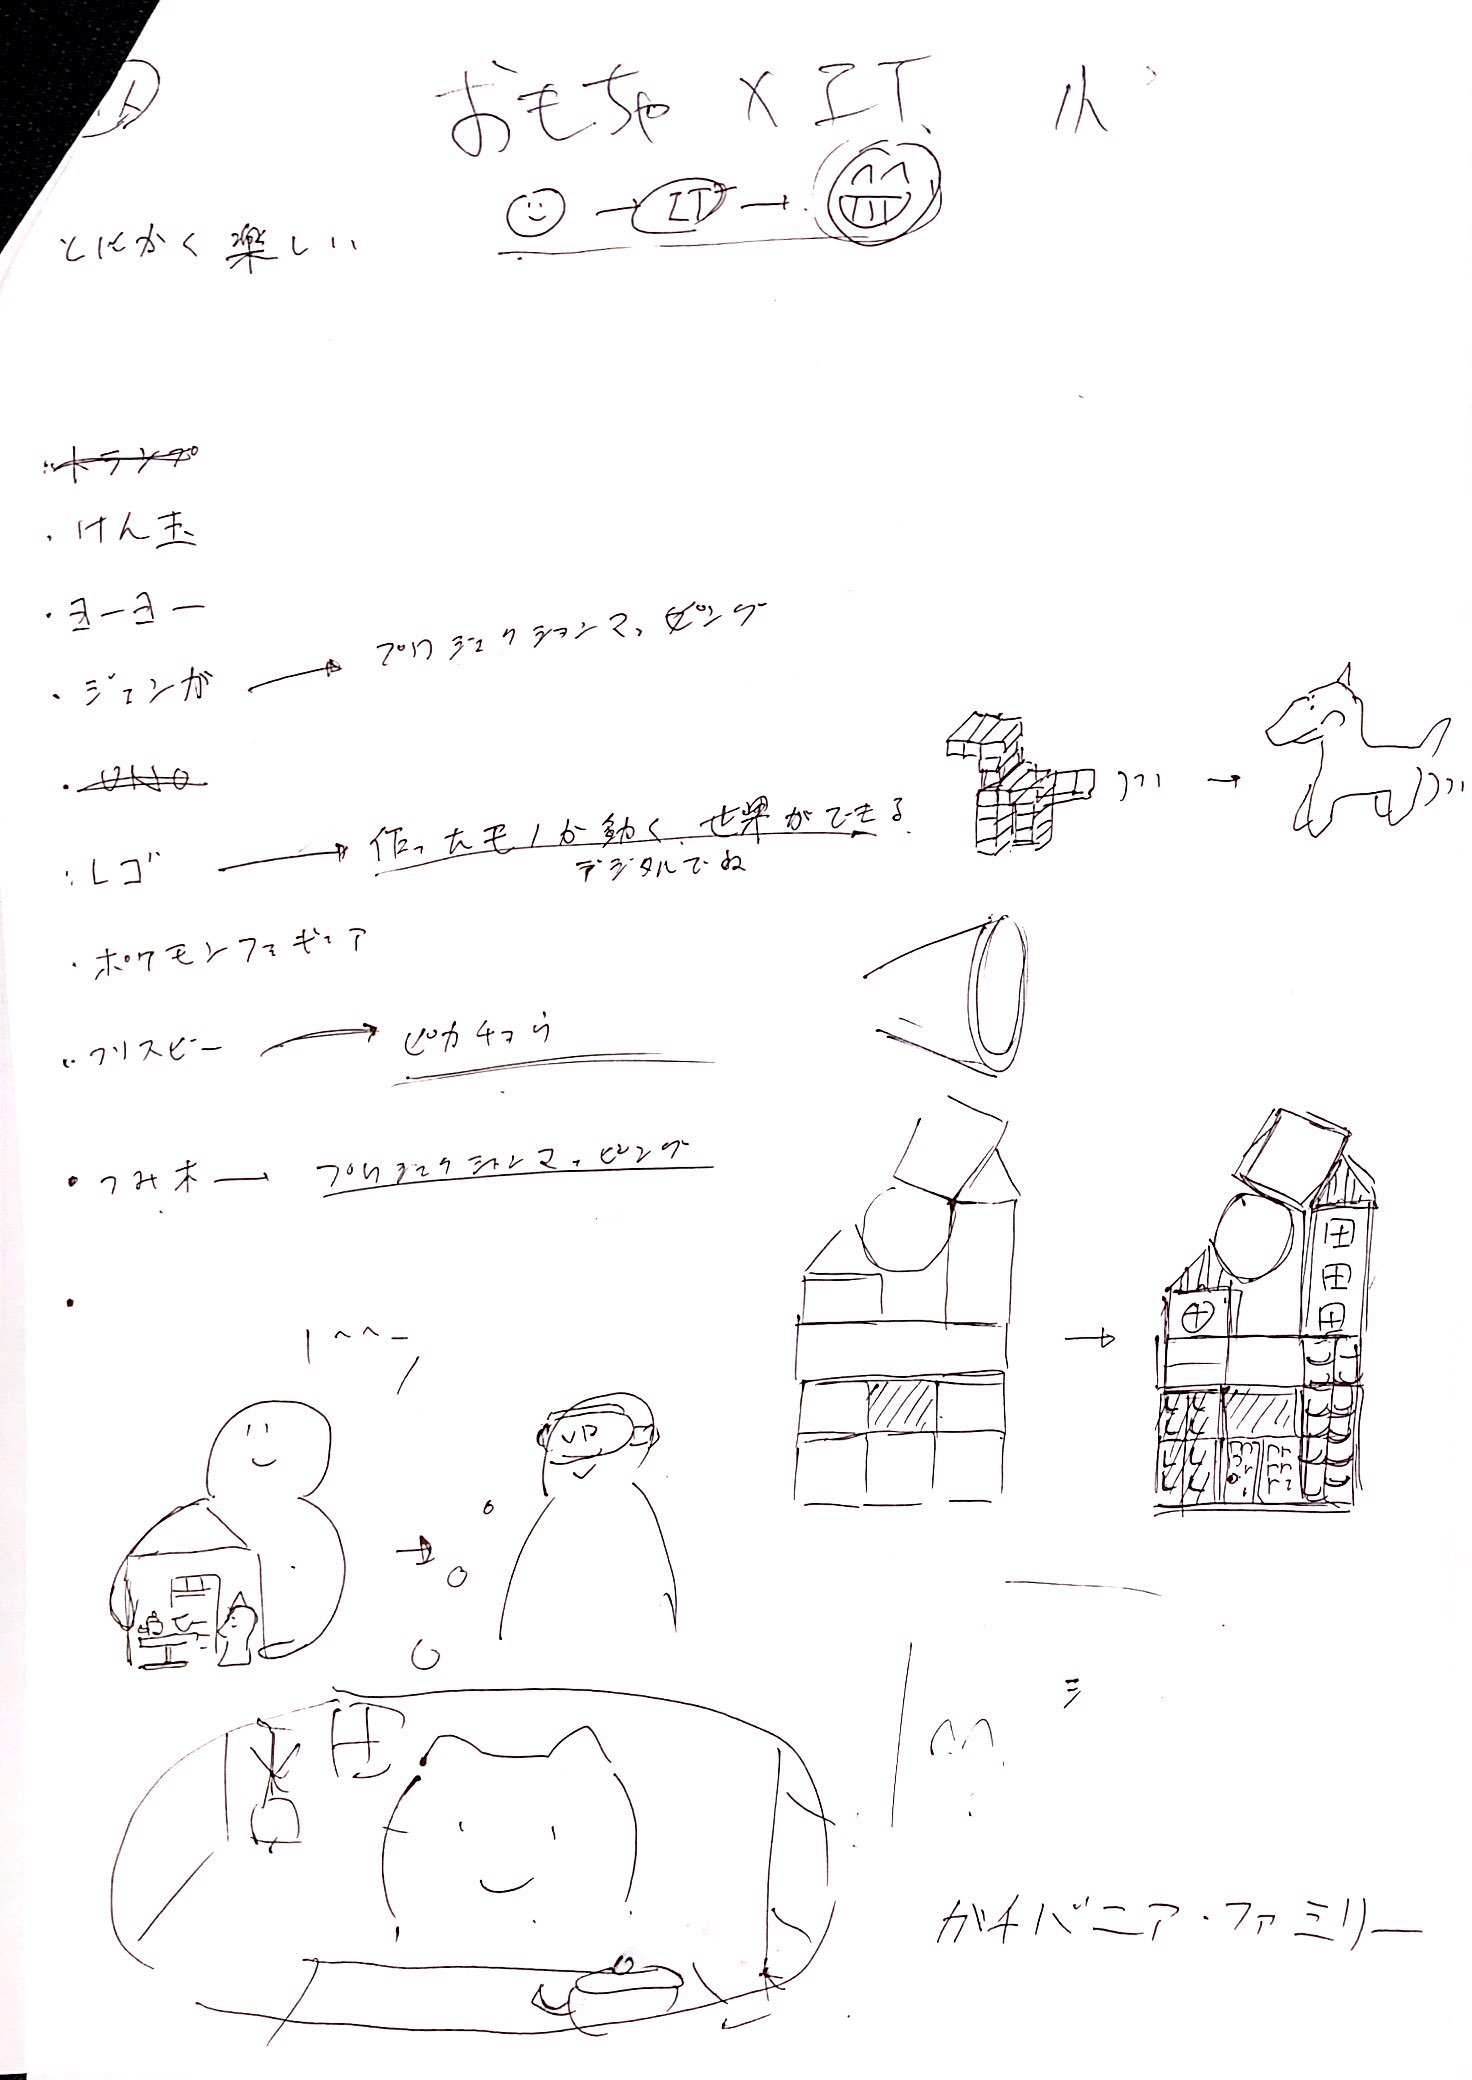 おもちゃ × IT
IT
とにかく楽しい
・トランプ
・けん玉
・ヨーヨー
・ジェンガ → プロジェクションマッピング
・UNO
・レゴ → 作ったモノが動く世界ができる
デジタルでね
・ポケモンフィギュア
・フリスビー → ピカチュウ
・つみ木 → プロジェクションマッピング
・
VR
ガチバニア・ファミリー